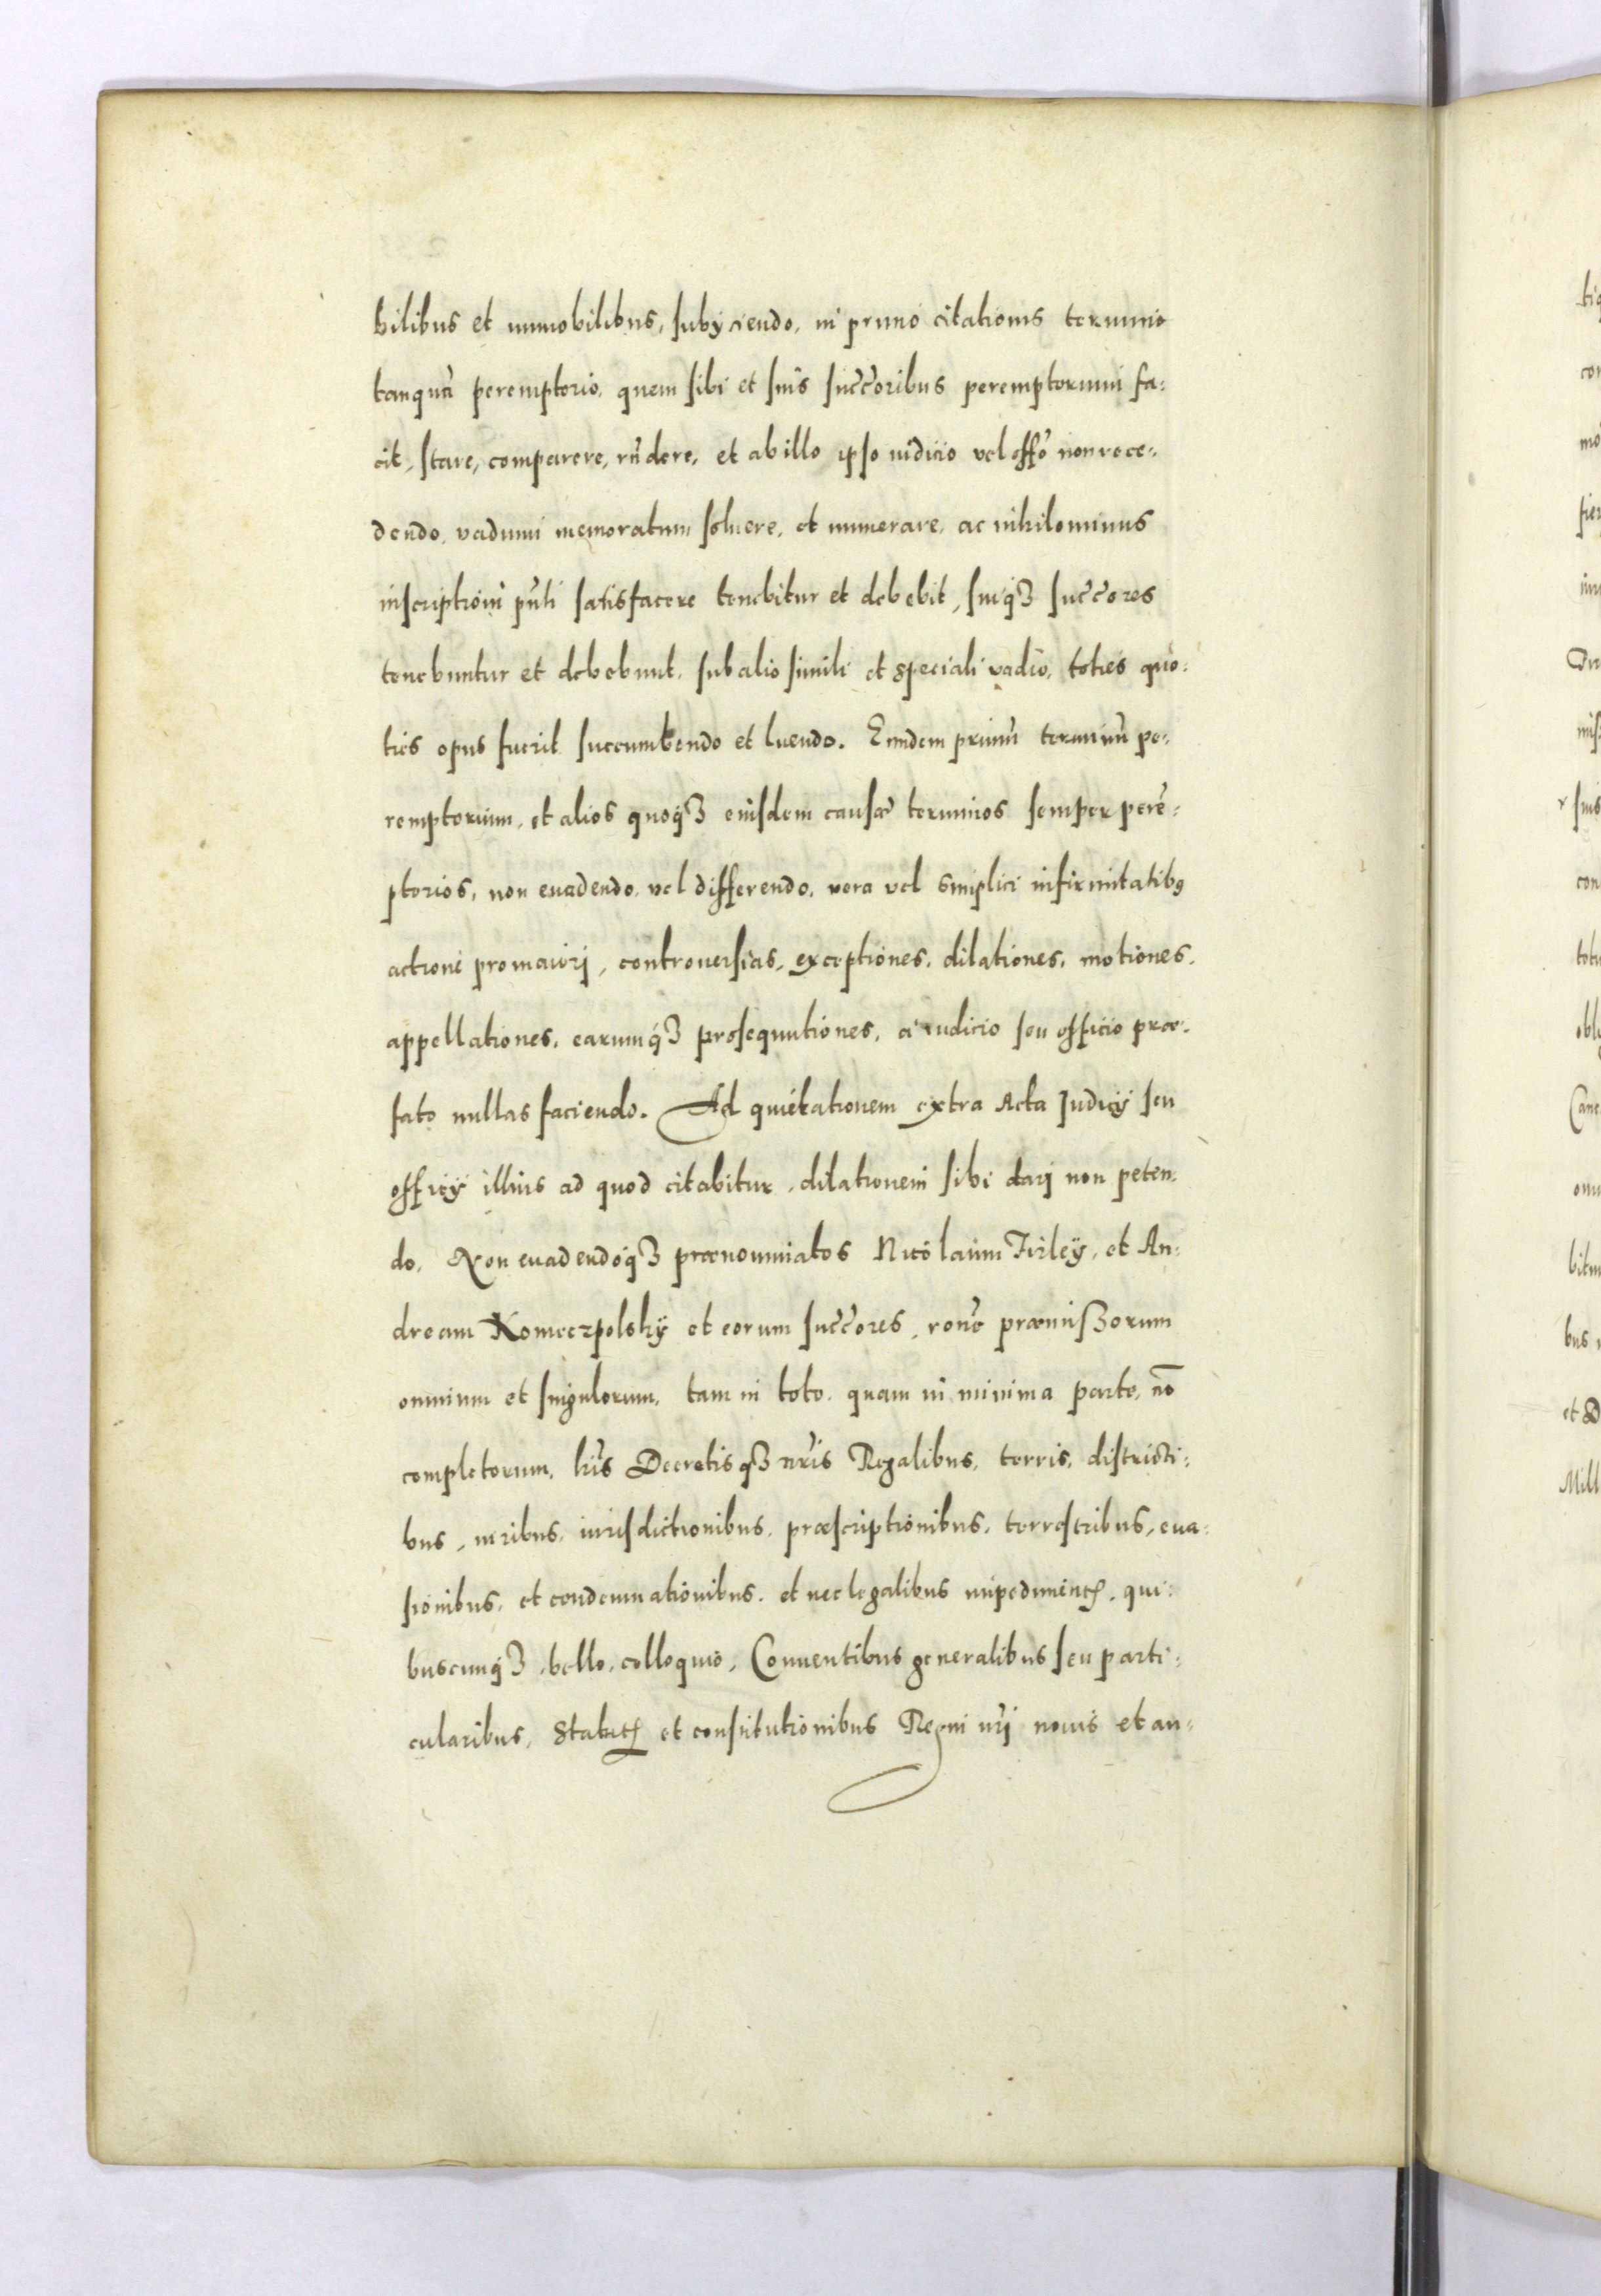 bilibus et immobilibus, subÿciendo, in primo citationis termino
tanquã peremptorio, quem sibi et suis succ̃oribus peremptorium fa-
cit, stare, comparere, rñdere, et ab illo ipso iudicio vel offõ non rece-
dendo, vadium memoratum soluere, et numerare, ac nihilominus
inscriptioni pñti satisfacere tenebitur et debebit, suiqȝ succ̃ores
tenebuntur et debebunt, sub alio simili et speciali vadio, toties quo-
ties opus fuerit succumbendo et luendo. Eundem primũ terminũ pe-
remptorium, et alios quoqȝ eiusdem causæ terminos semper perẽ-
ptorios, non euadendo, vel differendo, vera vel simplici infirmitatibꝰ
actione pro maiori, controuersias, exceptiones, dilationes, motiones,
appellationes, earumqȝ prosequutiones, à iudicio seu officio præ-
fato nullas faciendo. Ad quietationem extra Acta Judicÿ seu
officÿ illius ad quod citabitur, dilationem sibi darj non peten-
do, Non euadendoqȝ prænominatos Nicolaum Firleÿ, et An-
dream Koniecpolskÿ et eorum succ̃ores, rõne præmissorum
omnium et singulorum, tam in toto, quam in minima parte, nõ
completorum, lr̃is Decretisqȝ nr̃is Regalibus, terris, districti-
bus, iuribus, iurisdictionibus, præscriptionibus, terrestribus, eua-
sionibus, et condemnationibus, et nec legalibus impedimentꝭ, qui-
buscunqȝ, bello, colloquio, Conuentibus generalibus seu parti-
cularibus, Statutꝭ et constitutionibus Regni nr̃j nouis et an-